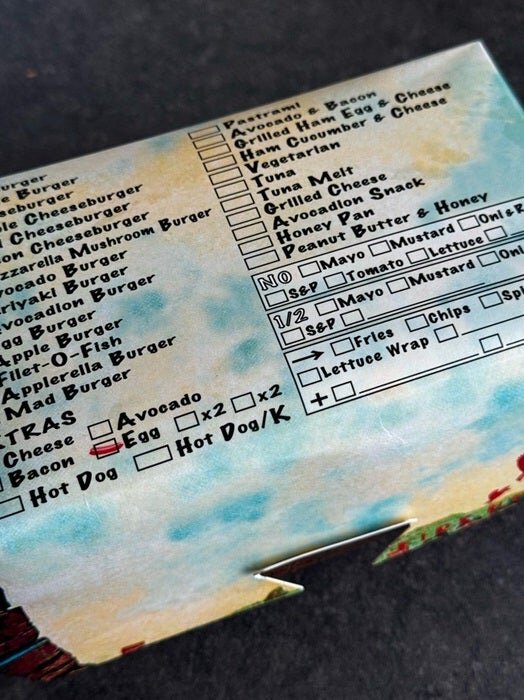 Burger
Burger
Cheeseburger
Cheeseburger
Cheeseburger
Mozzarella Mushroom Burger
Avocado Burger
Teriyaki Burger
Avocadion Burger
Egg Burger
Apple Burger
Filet-O-Fish
Applerella Burger
Mad Burger
EXTRAS
Cheese Avocado x2
Bacon Egg x2
Hot Dog Hot Dog/K
Pastrami
Avocado & Bacon
Grilled Ham Egg & Cheese
Ham Cucumber & Cheese
Vegetarian
Tuna
Tuna Melt
Grilled Cheese
Avocadion Snack
Honey Pan
Peanut Butter & Honey
NO Mayo Mustard
S&P Tomato Lettuce
1/2 Mayo Mustard
S&P
→ Fries Chips
Lettuce Wrap
+